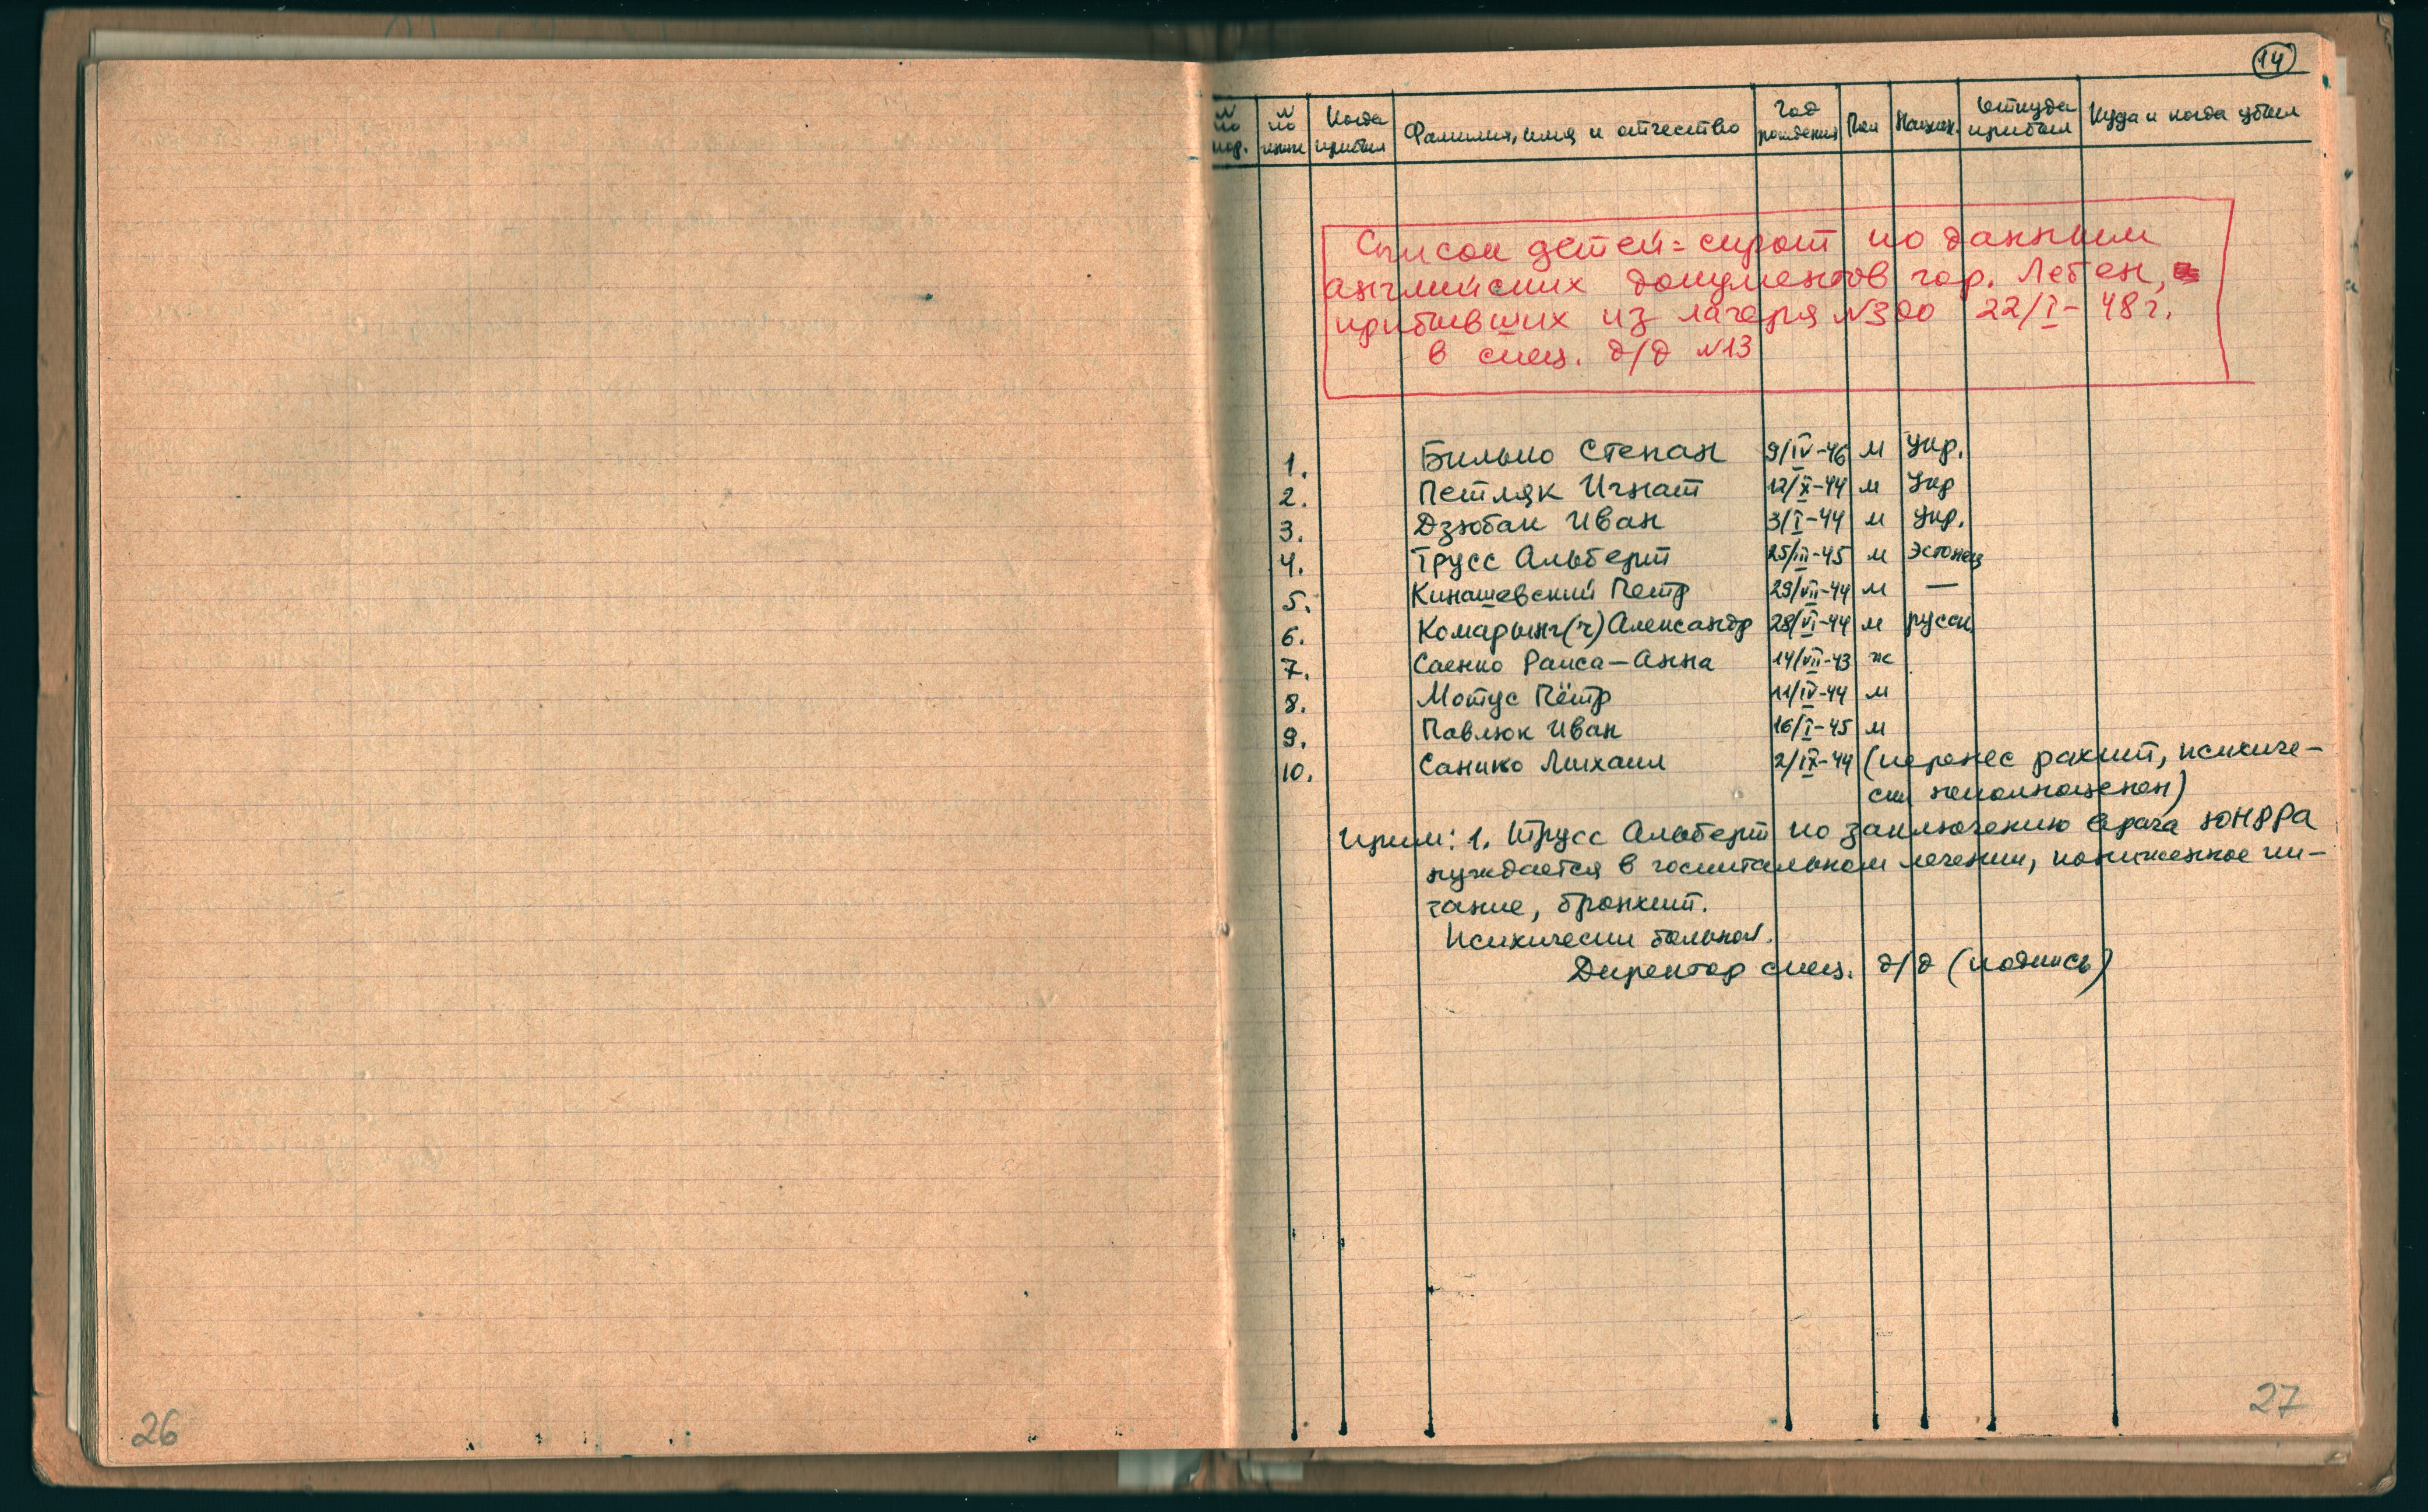 14
N по пор.
N по книге
Когда прибыл
Фамилия, имя и отчество
Год рождения
Пол
Национ.
Откуда прибыл
Куда и когда убыл
Список детей=сирот по данным
английских документов гор. Лебен,
прибывших из лагеря №300 22/I-48г.
в спец. д/д №13
1. Билько Степан 9/IV-46 м Укр.
2. Петляк Игнат 12/X-44 м Укр
3. Дзюбак Иван 3/I-44 м Укр.
4. Трусс Альберт 25/III-45 м Эстонец
5. Кинашевский Петр 29/VII-44 м —
6. Комарынг(ч) Александр 28/VI-44 м русск
7. Саенко Раиса-Анна 14/VII-43 ж
8. Мотус Пётр 11/IV-44 м
9. Павлюк Иван 16/I-45 м
10. Санико Михаил 2/IX-44 (перенес рахит, психиче-
ски неполноценен)
Прим: 1. Трусс Альберт по заключению врача ЮНРРА
нуждается в госпитальном лечении, пониженное пи-
тание, бронхит.
Психически больной.
Директор спец. д/д (подпись)
26
27